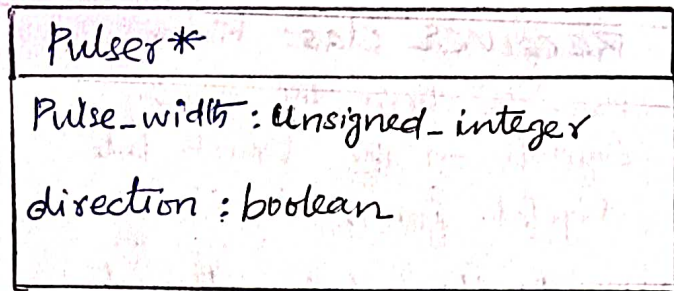 Pulser*
Pulse_width : Unsigned_integer
direction : boolean